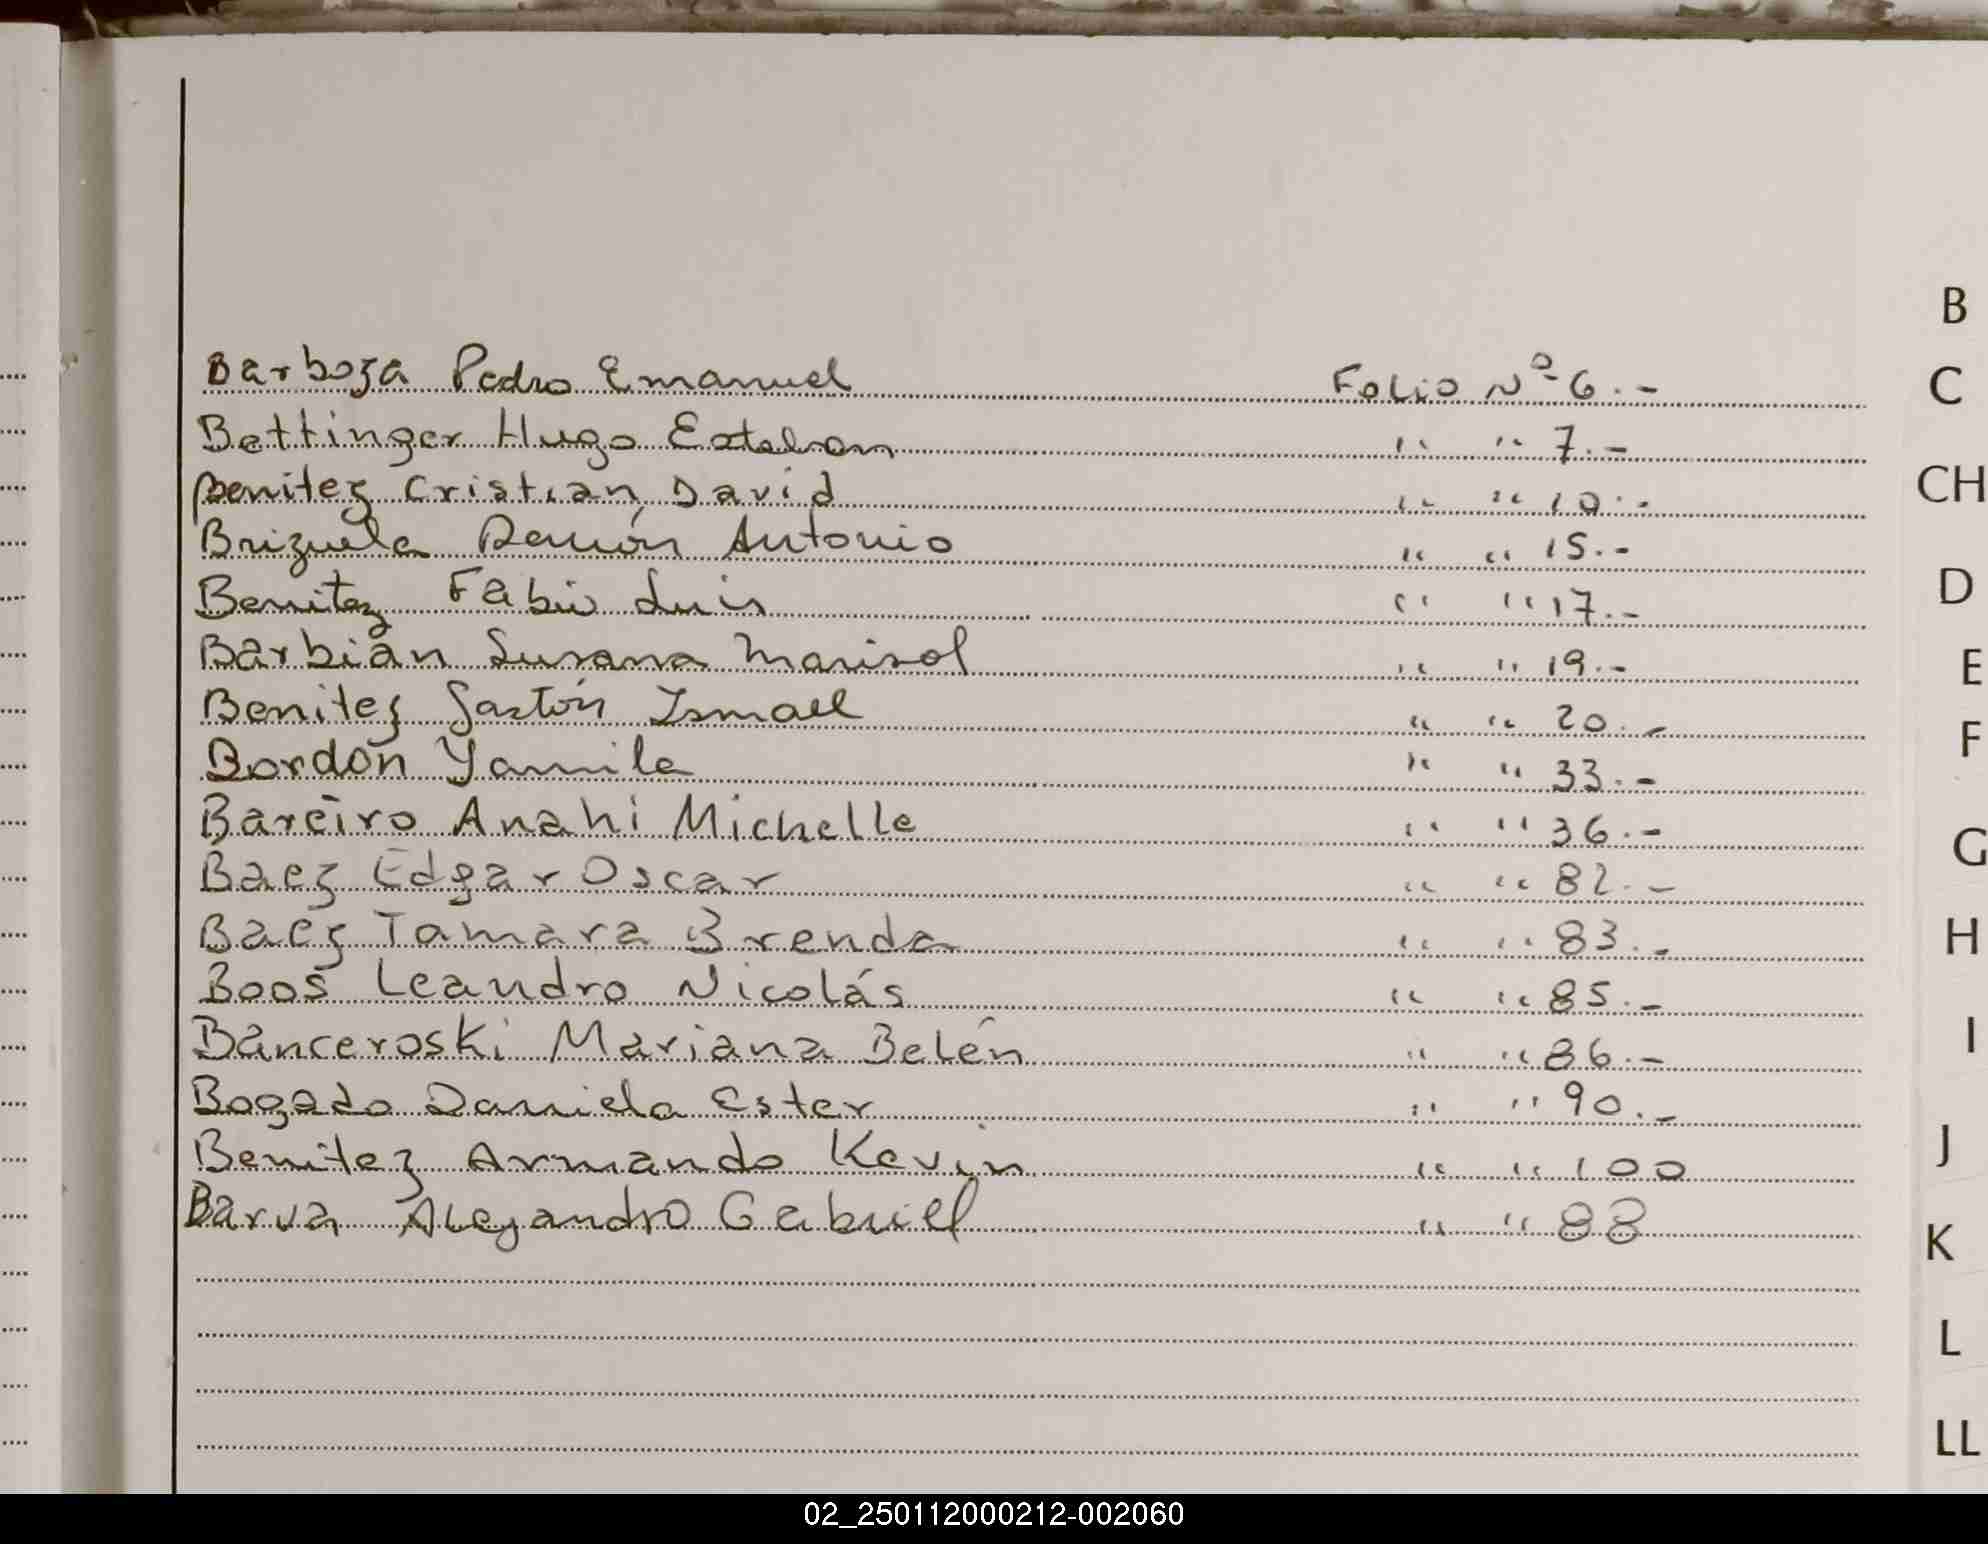 Barboza Pedro Emanuel Folio Nº 6.-
Bettinger Hugo Esteban " " 7.-
Benitez Cristian David " " 10.-
Brizuela Ramón Antonio " " 15.-
Benitez Fabio Luis " " 17.-
Barbian Susana Marisol " " 19.-
Benitez Gastón Ismael " " 20.-
Bordón Yamila " " 33.-
Bareiro Anahi Michelle " " 36.-
Baez Edgar Oscar " " 82.-
Baez Tamara Brenda " " 83.-
Boos Leandro Nicolás " " 85.-
Banceroski Mariana Belén " " 86.-
Bogado Daniela Ester " " 90.-
Benitez Armando Kevin " " 100
Barva Alejandro Gabriel " " 88
B
C
CH
D
E
F
G
H
I
J
K
L
LL
02_250112000212-002060